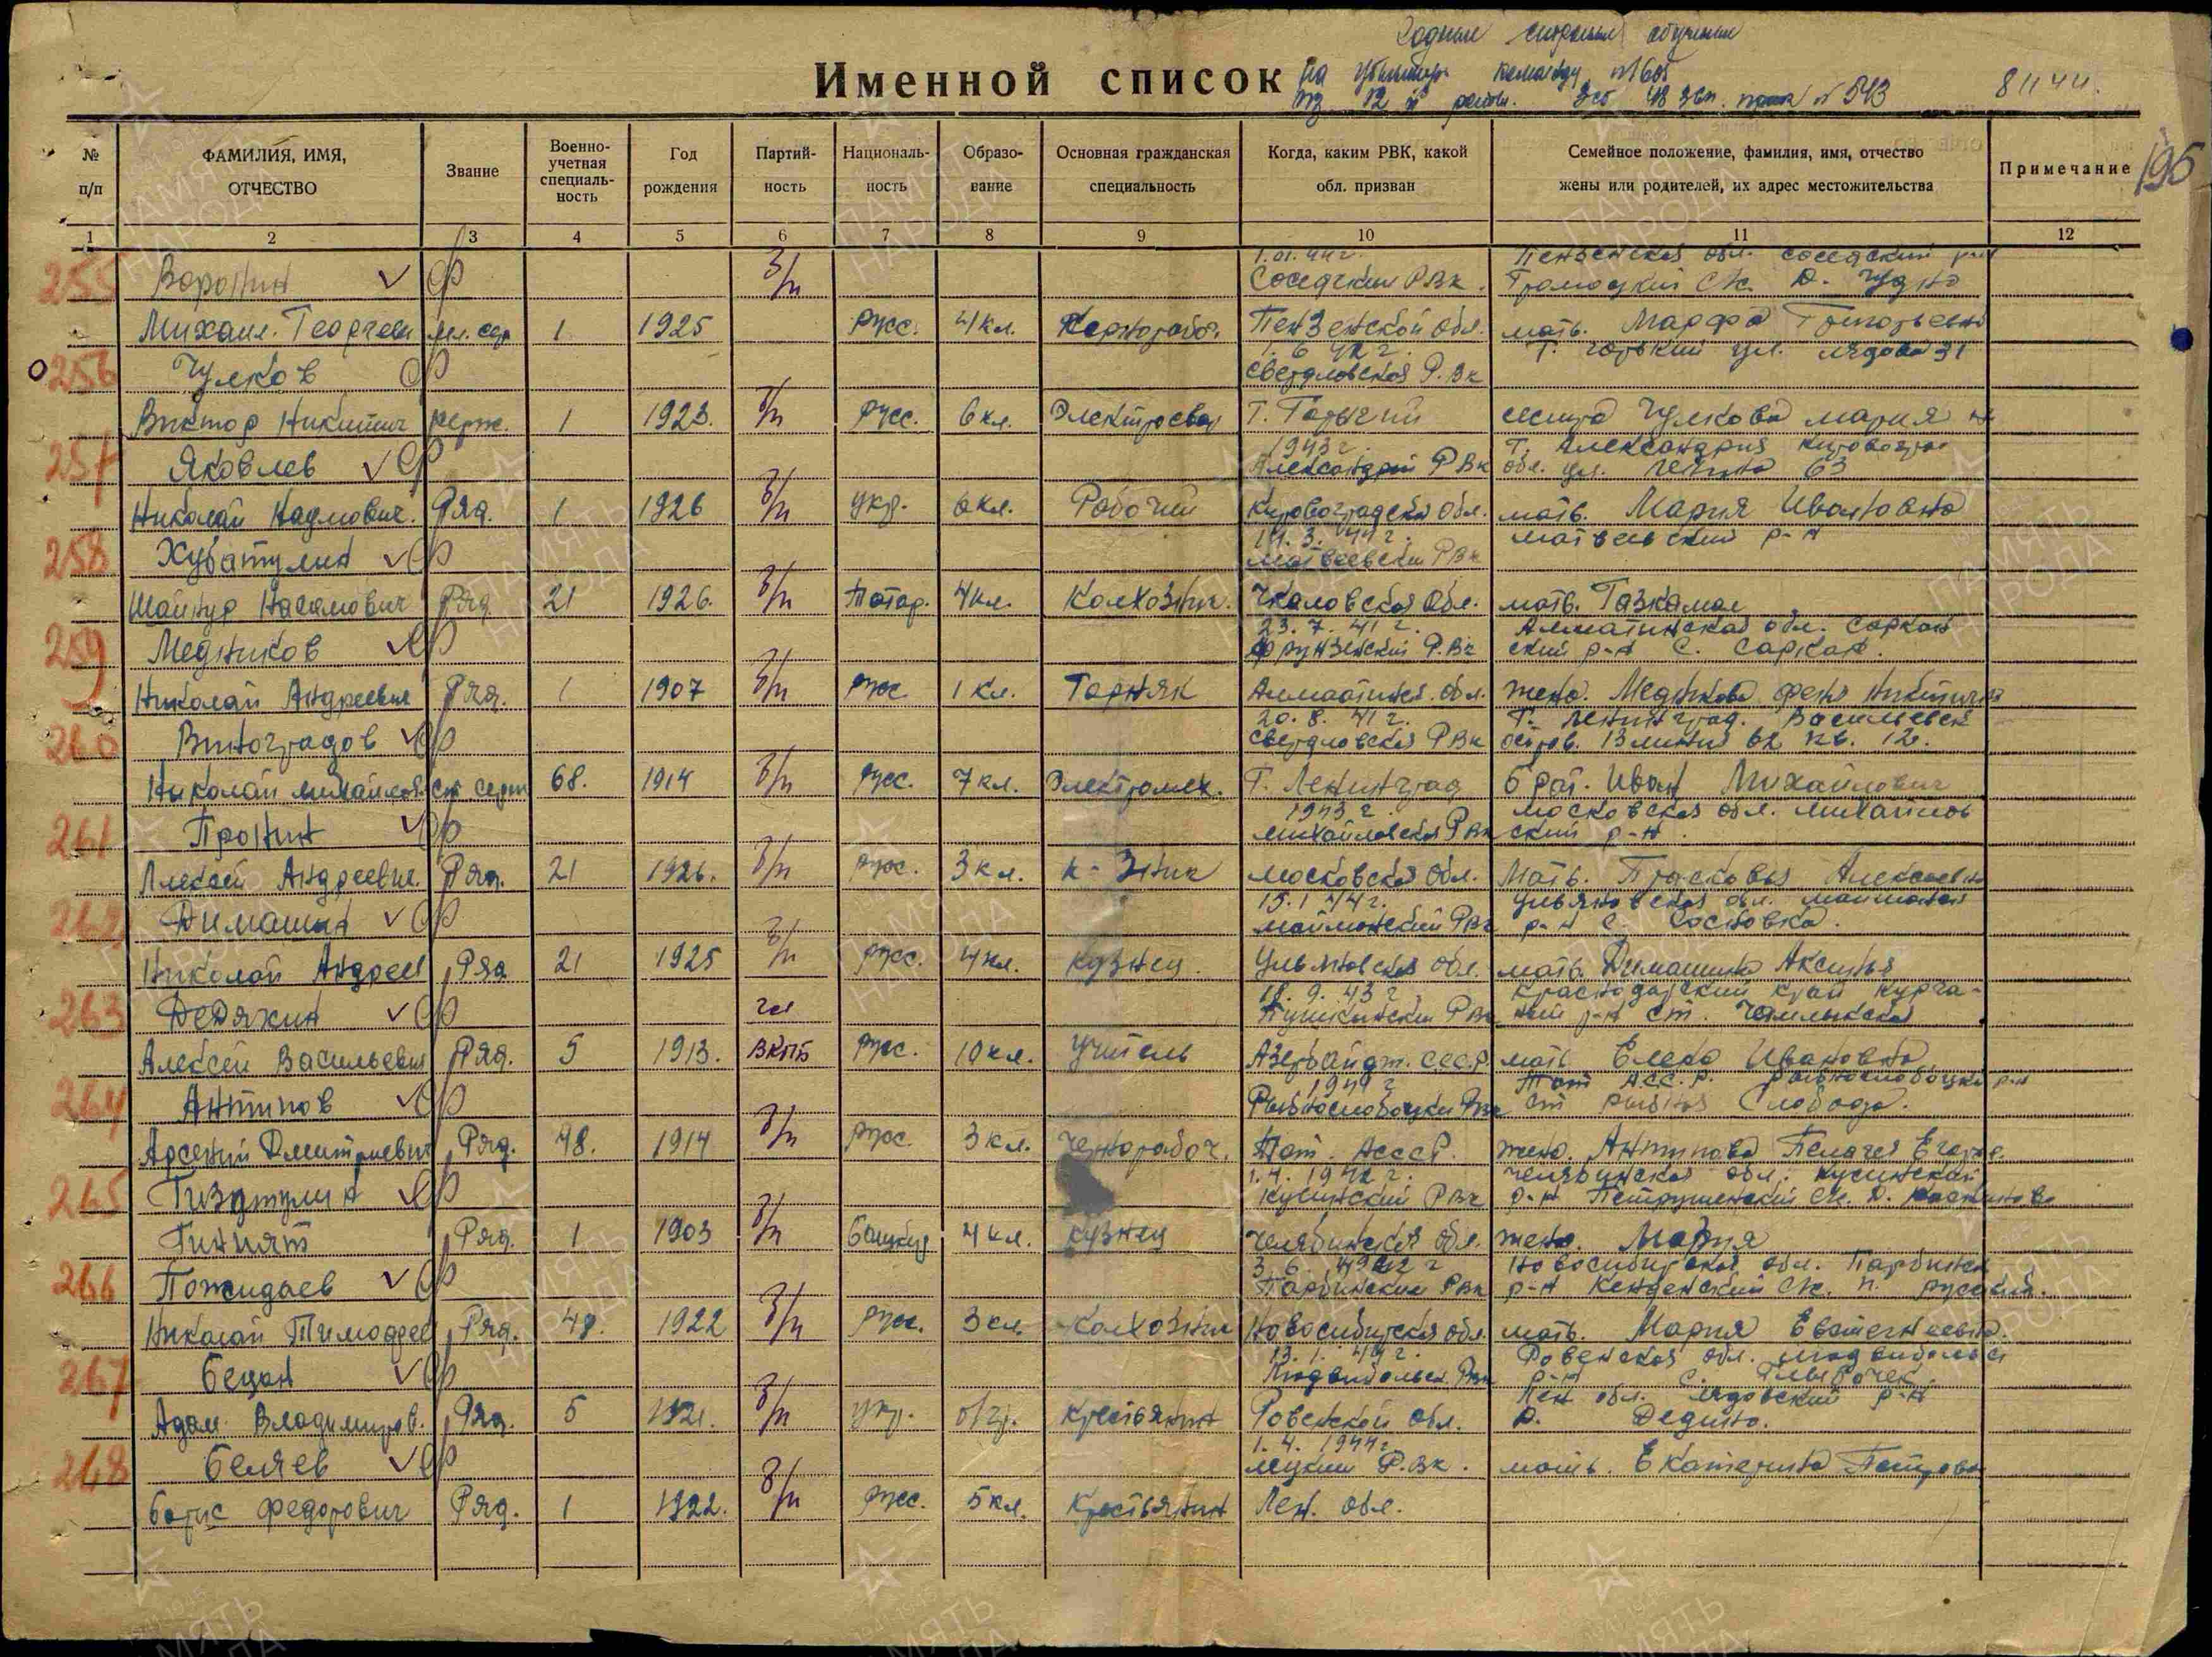 Годные строевые обученые
Именной список на убывшую команду №1605
из 12 й роты. 2сб 48 зсп. прик № 543 8 11 44.
195
№ п/п
ФАМИЛИЯ, ИМЯ, ОТЧЕСТВО
Звание
Военно-учетная специаль-ность
Год рождения
Партий-ность
Националь-ность
Образо-вание
Основная гражданская специальность
Когда, каким РВК, какой обл. призван
Семейное положение, фамилия, имя, отчество жены или родителей, их адрес местожительства
Примечание
1 2 3 4 5 6 7 8 9 10 11 12
1.01.44г. Пензенская обл. соседский р-н
255 Воронин б/п Соседский РВк. С/с. Д.
Михаил. Георгиев мл. сер 1 1925 Русс. 4 кл. Пензенской обл. мать. Марфа Григорьевна
1. 6 42 г. г. горький ул. 31
256 Чулков Свердловская Р.Вк
Виктор Никитич серж. 1 1923. б/п Русс. 6 кл. Электросвар г. Горький сестра Чулкова мария
1943 г. г. Александрия Кировоград
257 Яковлев Александрий РВк обл. ул. Ленина 63
Николай Наумович. Ряд. 1 1926 б/п укр. 6 кл. Рабочий Кировоградская обл. мать. Мария Ивановна
3. 44 г. матвеевский р-н
258 Хубатулин матвеевский РВк
Шайнур Ряд. 21 1926. б/п Татар. 4 кл. Колхозник. Чкаловская обл. мать. Газкамал
23. 7. 41 г. Алматинская обл. Саркан
259 Медников Фрунзенский Р.Вк ский р-н с. Саркан.
Николай Андреевич Ряд. 1 1907 б/п Русс 1 кл. Горняк Алматинск. обл. жена. Медникова феня Никитична
20. 8. 41 г. г. Ленинград. Васильевск
260 Виноградов Свердловская РВк остров. 13 линия 62 кв. 12.
Николай михайлов ст. серж 68. 1914 б/п Русс. 7 кл. Электромех. г. Ленинград брат. Иван Михайлович
1943 г. Московская обл. михайлов
261 Пронин михайловская РВк ский р-н.
Алексей Андреевич. Ряд. 21 1926. б/п Русс. 3 кл. к-зник Московская обл. Мать. Прасковья Алексеевна
15. 1 44 г. Ульяновская обл. майнский
262 Димашин РВк р-н с. Сосновка.
Николай Андреев Ряд 21 1925 б/п Русс. 4 кл. Кузнец. Ульяновская обл. мать. Димашина Аксинья
18. 9. 43 г. Краснодарский край курга-
263 Дедяхин чл Пушкинский РВк ный р-н ст. Чамлыкская
Алексей Васильевич Ряд. 5 1913. ВКПб Русс. 10 кл. Учитель Азербайдж. С.С.С.Р. мать Елена Ивановна
1941 г Тат АСС.Р. Рыбнослободский р-н
264 Антипов Рыбнослободский РВк ст рыбная Слобода.
Арсений Дмитриевич Ряд. 48. 1914 б/п Русс. 3 кл. Чернорабоч. Тат. АСССР. жена. Антипова Пелагея Егоров.
1. 4. 1942 г. Челябинская обл. кусинский
265 Гизатулин Кусинский РВк р-н Петрушенский с/с. д.
Гиният Ряд. 1 1903 б/п Башкир 4 кл. Кузнец Челябинская обл. жена. Мария
3. 6. 1942 г Новосибирская обл. Парбинск
266 Пожидаев Парбинский РВк р-н Кенденский с/с. п. русский.
Николай Тимофеев Ряд. 48. 1922 б/п Русс. 3 кл. Колхозник Новосибирская обл. мать. Мария
13. 1. 44 г. Ровенская обл. людвипольск
267 Бецан Людвипольск. РВк р-н с.
Адам. Владимиров. Ряд. 5 1921. б/п укр. Крестьянин Ровенской обл.
Лен обл. лядовский р-н
д. Дедино.
1. 4. 1944 г.
268 Беляев Р.Вк. мать. Екатерина Петровна
Борис Федорович Ряд. 1 1922. б/п Русс. 5 кл. Крестьянин Лен. обл.